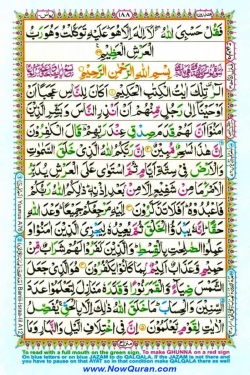 ١٨٨
فَقُلْ حَسْبِيَ اللّٰهُ لَآ اِلٰهَ اِلَّا هُوَ عَلَيْهِ تَوَكَّلْتُ وَهُوَ رَبُّ
الْعَرْشِ الْعَظِيْمِ
بِسْمِ اللّٰهِ الرَّحْمٰنِ الرَّحِيْمِ
الٓرٰ تِلْكَ اٰيٰتُ الْكِتٰبِ الْحَكِيْمِ اَكَانَ لِلنَّاسِ عَجَبًا اَنْ
اَوْحَيْنَآ اِلٰى رَجُلٍ مِّنْهُمْ اَنْ اَنْذِرِ النَّاسَ وَبَشِّرِ الَّذِيْنَ
اٰمَنُوْٓا اَنَّ لَهُمْ قَدَمَ صِدْقٍ عِنْدَ رَبِّهِمْ قَالَ الْكٰفِرُوْنَ
اِنَّ هٰذَا لَسٰحِرٌ مُّبِيْنٌ اِنَّ رَبَّكُمُ اللّٰهُ الَّذِيْ خَلَقَ السَّمٰوٰتِ
وَالْاَرْضَ فِيْ سِتَّةِ اَيَّامٍ ثُمَّ اسْتَوٰى عَلَى الْعَرْشِ يُدَبِّرُ
الْاَمْرَ مَا مِنْ شَفِيْعٍ اِلَّا مِنْۢ بَعْدِ اِذْنِهٖ ذٰلِكُمُ اللّٰهُ رَبُّكُمْ
فَاعْبُدُوْهُ اَفَلَا تَذَكَّرُوْنَ اِلَيْهِ مَرْجِعُكُمْ جَمِيْعًا وَعْدَ اللّٰهِ
حَقًّا اِنَّهٗ يَبْدَؤُا الْخَلْقَ ثُمَّ يُعِيْدُهٗ لِيَجْزِيَ الَّذِيْنَ اٰمَنُوْا وَ
عَمِلُوا الصّٰلِحٰتِ بِالْقِسْطِ وَالَّذِيْنَ كَفَرُوْا لَهُمْ شَرَابٌ مِّنْ
حَمِيْمٍ وَّعَذَابٌ اَلِيْمٌۢ بِمَا كَانُوْا يَكْفُرُوْنَ هُوَ الَّذِيْ جَعَلَ
الشَّمْسَ ضِيَآءً وَّالْقَمَرَ نُوْرًا وَّقَدَّرَهٗ مَنَازِلَ لِتَعْلَمُوْا عَدَدَ
السِّنِيْنَ وَالْحِسَابَ مَا خَلَقَ اللّٰهُ ذٰلِكَ اِلَّا بِالْحَقِّ يُفَصِّلُ
الْاٰيٰتِ لِقَوْمٍ يَّعْلَمُوْنَ اِنَّ فِي اخْتِلَافِ الَّيْلِ وَالنَّهَارِ وَمَا
To read with a full mouth on the green sign, To make GHUNNA on a red sign
blue letters or on blue JAZAM to do QALQALA. If the JAZAM is not there and
you have to pause on that AYAT so in that condition make QALQALA there as well
www.NowQuran.com